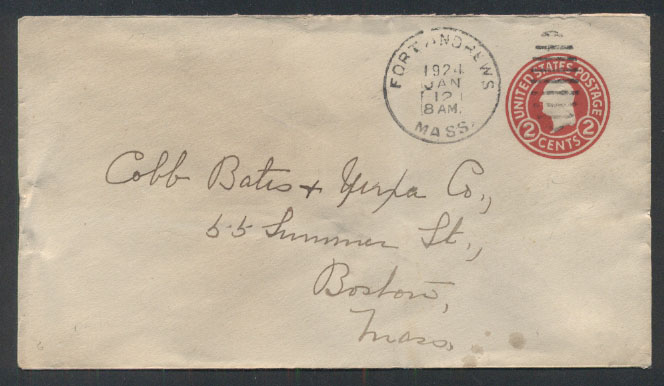 FORT ANDREWS
1924
JAN
12
8 AM.
MASS.
UNITED STATES POSTAGE
2 CENTS 2
Cobb Bates + Yerxa Co.,
55 Summer St.,
Boston,
Mass.